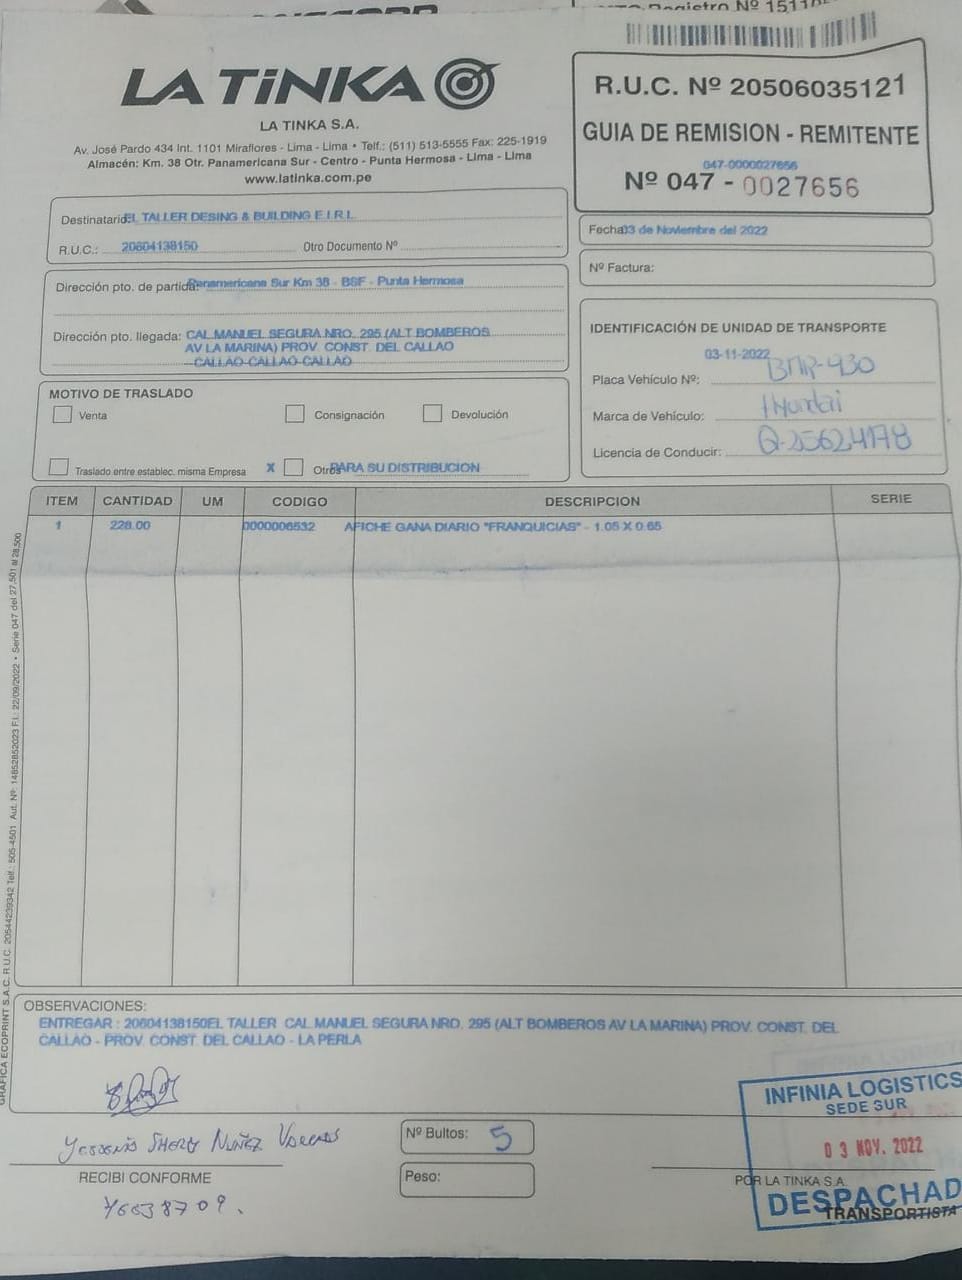 Registro Nº 1511
LA TiNKA
LA TINKA S.A.
Av. José Pardo 434 Int. 1101 Miraflores - Lima - Lima • Telf.: (511) 513-5555 Fax: 225-1919
Almacén: Km. 38 Otr. Panamericana Sur - Centro - Punta Hermosa - Lima - Lima
www.latinka.com.pe
R.U.C. Nº 20506035121
GUIA DE REMISION - REMITENTE
047-0000027656
Nº 047 - 0027656
Destinatario: EL TALLER DESING & BUILDING E.I.R.L
R.U.C.: 20604138150 Otro Documento Nº
Fecha: 03 de Noviembre del 2022
Nº Factura:
Dirección pto. de partida: Panamericana Sur Km 38 - BSF - Punta Hermosa
Dirección pto. llegada: CAL.MANUEL SEGURA NRO. 295 (ALT BOMBEROS
AV LA MARINA) PROV. CONST. DEL CALLAO
CALLAO-CALLAO-CALLAO
IDENTIFICACIÓN DE UNIDAD DE TRANSPORTE
03-11-2022
Placa Vehículo Nº:
Marca de Vehículo: Hyundai
Licencia de Conducir: Q-25624178
MOTIVO DE TRASLADO
Venta Consignación Devolución
Traslado entre establec. misma Empresa X Otros PARA SU DISTRIBUCION
ITEM CANTIDAD UM CODIGO DESCRIPCION SERIE
1 228.00 0000006532 AFICHE GANA DIARIO "FRANQUICIAS" - 1.05 X 0.65
GRAFICA ECOPRINT S.A.C. R.U.C. 20544239342 Telf.: 505-4501 Aut. Nº: 14852852023 F.I.: 22/09/2022 • Serie 047 del 27,501 al 28,500
OBSERVACIONES:
ENTREGAR : 20604138150EL TALLER CAL MANUEL SEGURA NRO. 295 (ALT BOMBEROS AV LA MARINA) PROV. CONST. DEL
CALLAO - PROV. CONST. DEL CALLAO - LA PERLA
Nuñez
RECIBI CONFORME
46638709.
Nº Bultos: 5
Peso:
INFINIA LOGISTICS
SEDE SUR
03 NOV. 2022
POR LA TINKA S.A.
DESPACHAD
TRANSPORTISTA